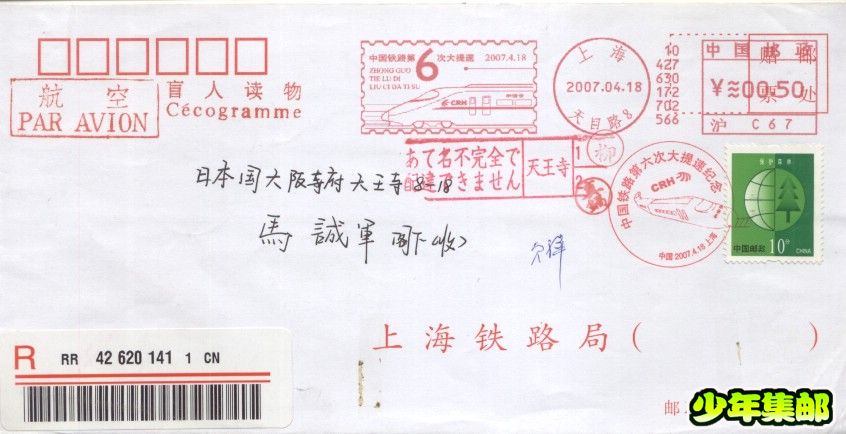 航 空
PAR AVION
盲 人 读 物
Cécogramme
中国铁路第6次大提速 2007.4.18
ZHONG GUO
TIE LU DI
LIU CI DA TI SU
CRH
上海
2007.04.18
天目路8
10
427
630
172
702
566
中国邮政
¥≈00.50
沪 C67
あて名不完全で
配達できません
天王寺
1
2
柳
中国铁路第六次大提速纪念
CRH
中国 2007.4.18 上海
保护森林
中国邮政 10分
CHINA
日本国大阪寺府天王寺 8-18
馬 誠 軍 閣下 收
欠祥
上海铁路局( )
R RR 42 620 141 1 CN
邮
少年集邮